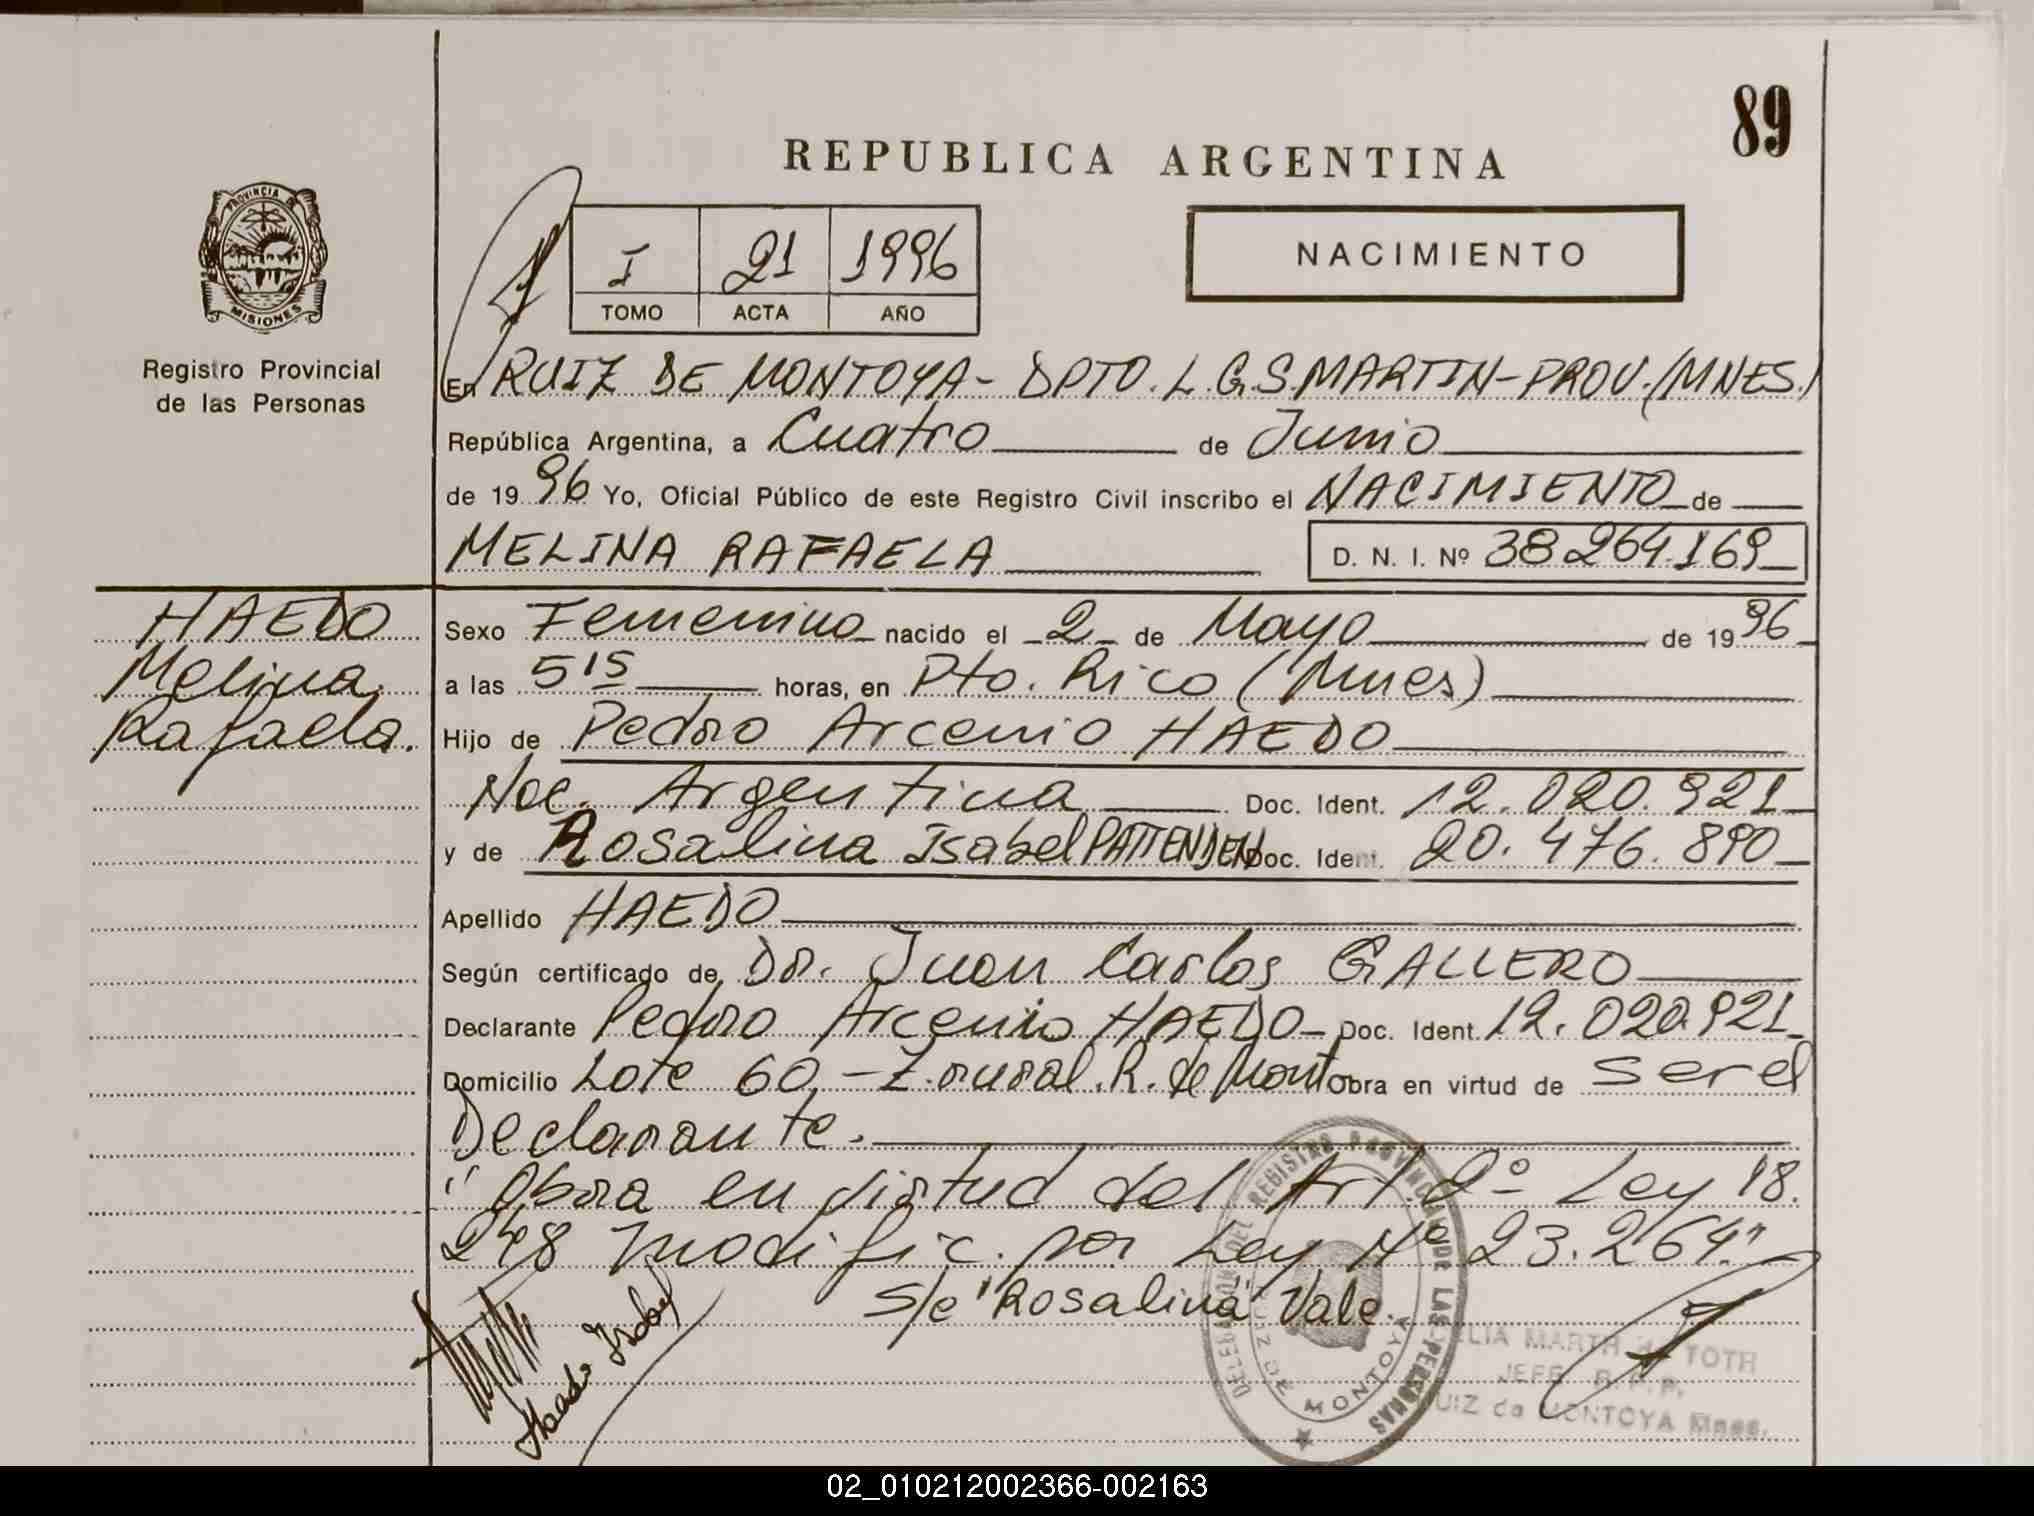 89
REPUBLICA ARGENTINA
PROVINCIA DE
MISIONES
I 21 1996
TOMO ACTA AÑO
NACIMIENTO
Registro Provincial
de las Personas
En RUIZ DE MONTOYA- DPTO. L.G.S.MARTIN-PROV.(MNES.)
República Argentina, a Cuatro de Junio
de 1996 Yo, Oficial Público de este Registro Civil inscribo el NACIMIENTO de
MELINA RAFAELA D. N. I. Nº 38.264.169
HAEDO
Melina
Rafaela.
Sexo Femenino nacido el 2 de Mayo de 1996
a las 5 15 horas, en Pto. Rico (Mnes)
Hijo de Pedro Arcenio HAEDO
Nac. Argentina Doc. Ident. 12.020.921
y de Rosalina Isabel PATTENDEN Doc. Ident. 20.476.890
Apellido HAEDO
Según certificado de Dr. Juan Carlos GALLERO
Declarante Pedro Arcenio HAEDO Doc. Ident. 12.020.921
Domicilio Lote 60,-Z.rural.R. de Mont Obra en virtud de ser el
Declarante.
"Obra en virtud del Art. 2º Ley 18.
248 modific. por Ley Nº 23.264."
S/e "Rosalina" Vale.
DELEGACION DEL REGISTRO PROVINCIAL DE LAS PERSONAS
RUIZ DE MONTOYA
Haedo Isabel
TOTH
JEFE R.P.P.
RUIZ de MONTOYA Mnes.
02_010212002366-002163